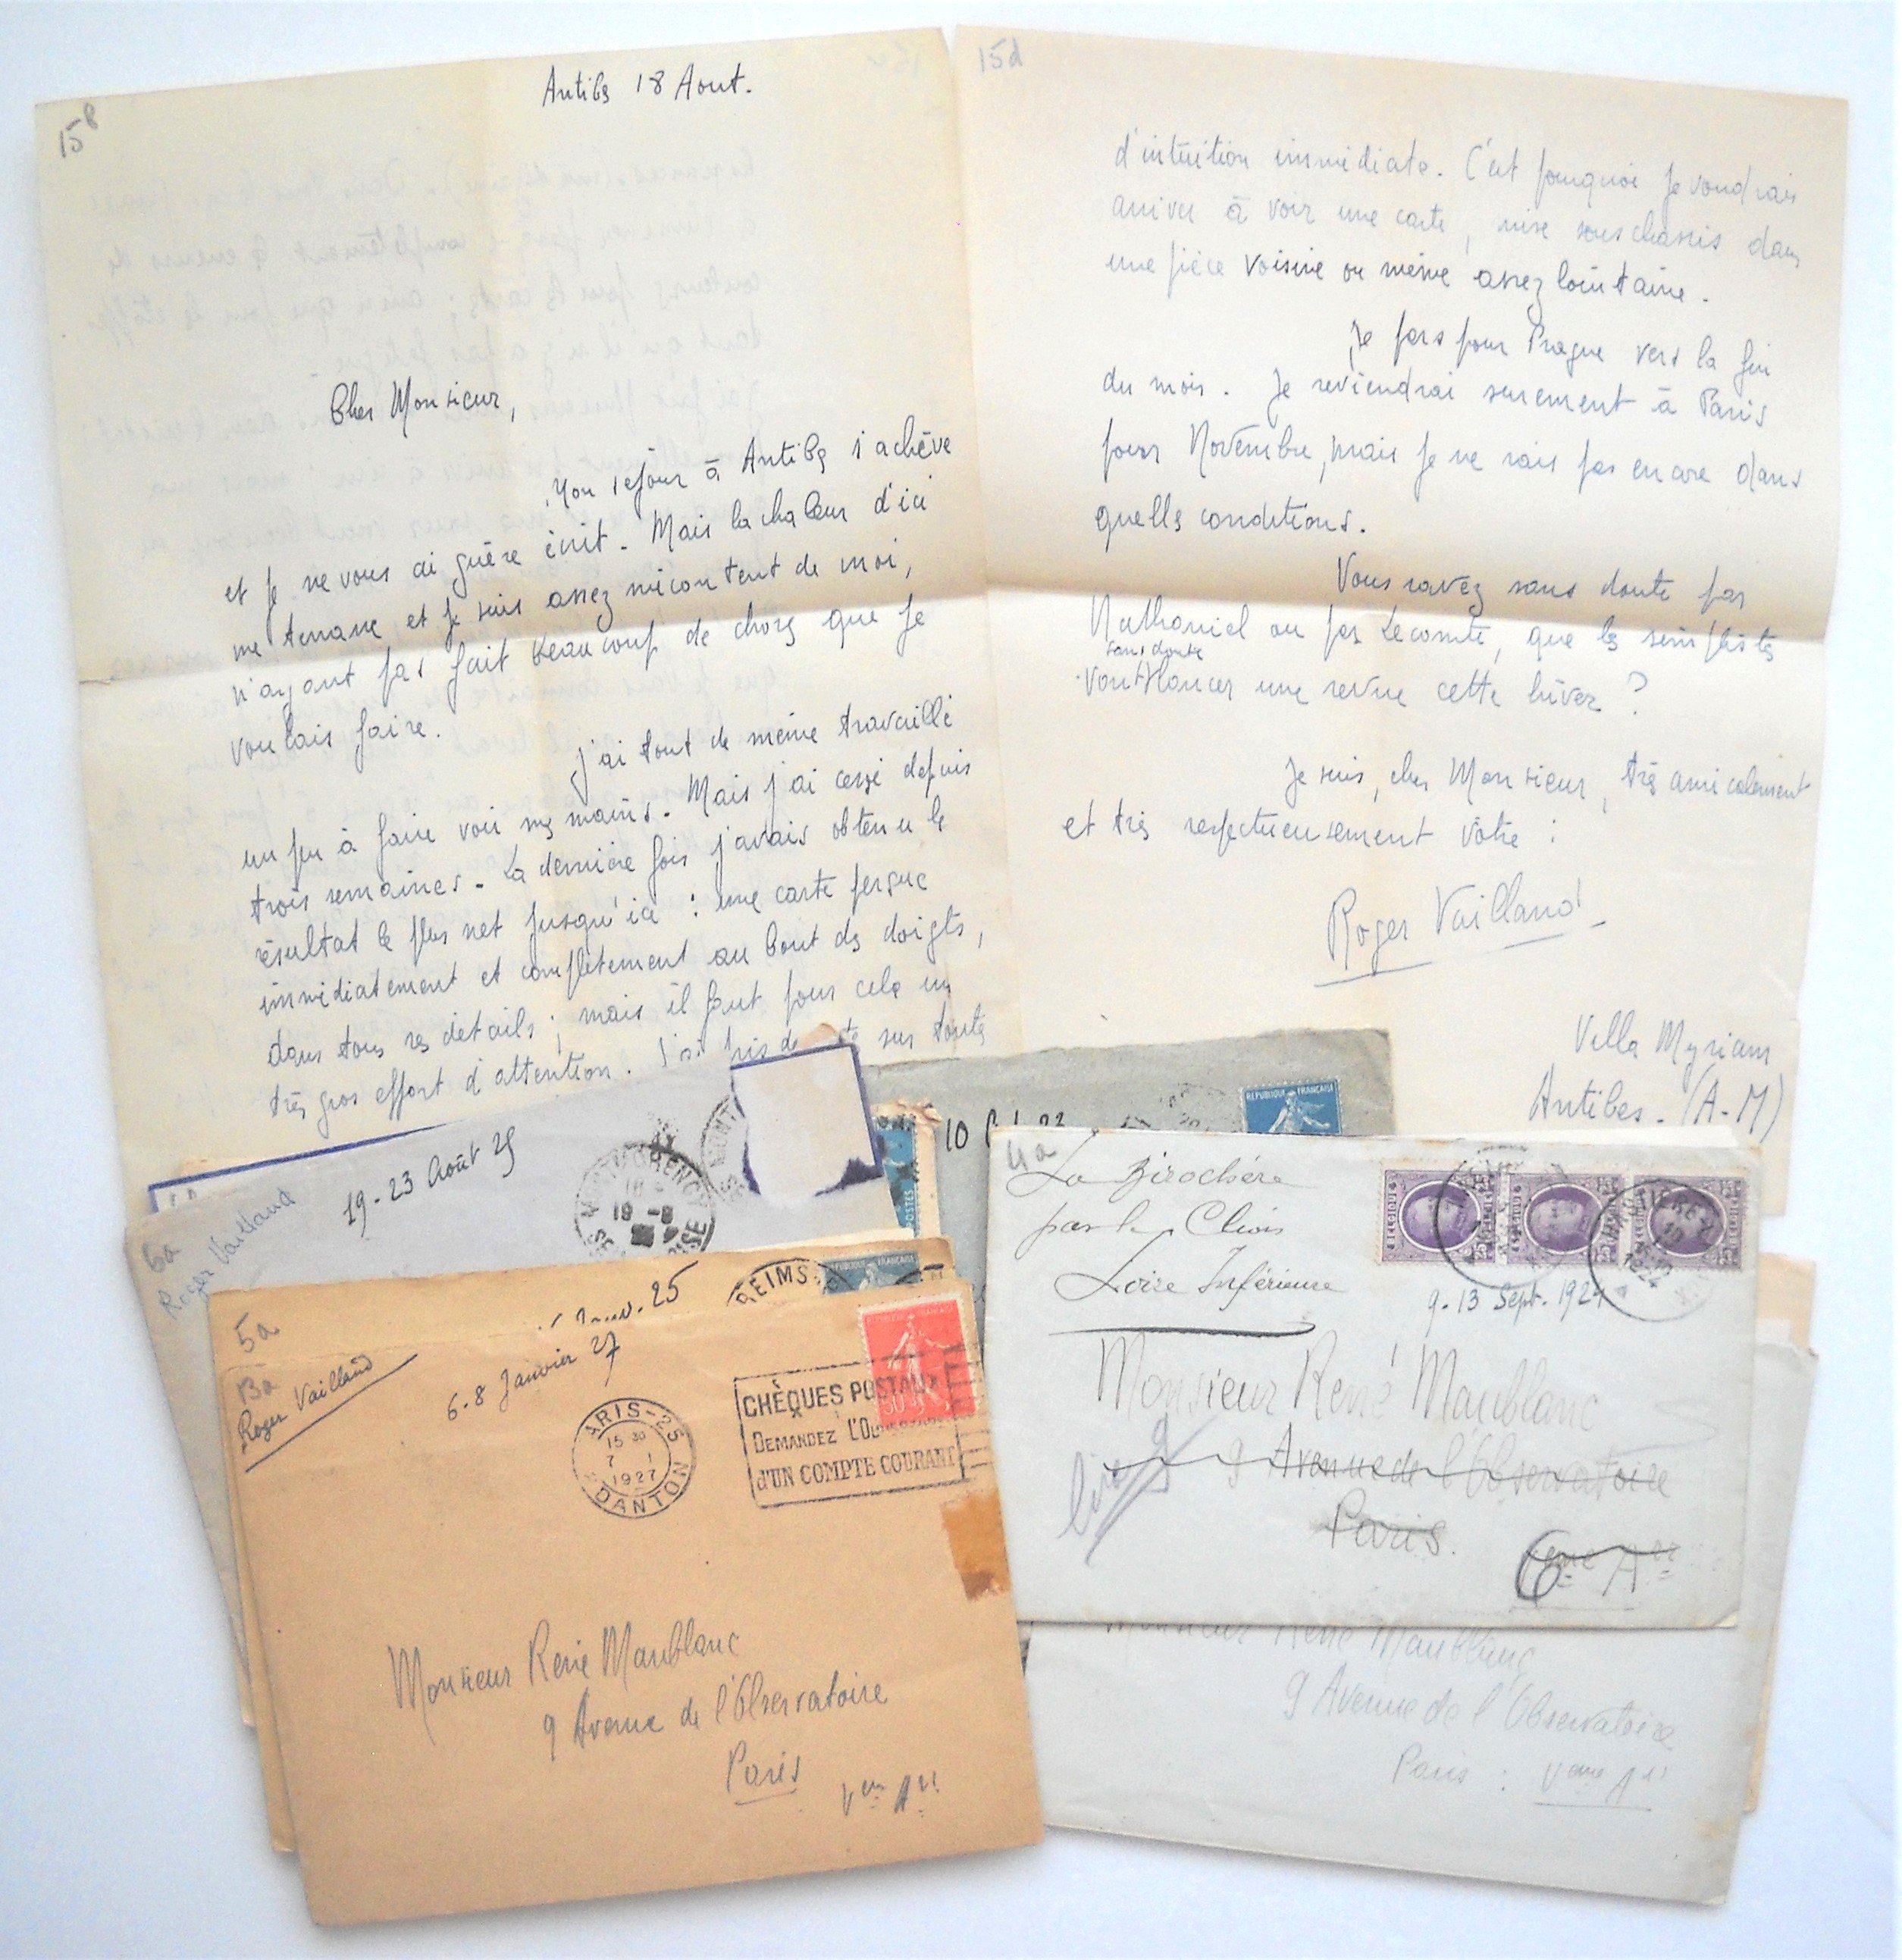 15 b
Antibes 18 Aout.
Cher Monsieur,
Mon séjour à Antibes s'achève
et je ne vous ai guère écrit. Mais la chaleur d'ici
me terrasse et je suis assez mécontent de moi,
n'ayant pas fait beaucoup de choses que je
voulais faire.
J'ai tout de même travaillé
un peu à faire voir mes mains. Mais j'ai cessé depuis
trois semaines. La dernière fois j'avais obtenu le
résultat le plus net jusqu'ici : une carte perçue
immédiatement et complètement au bout des doigts,
dans tous ses détails ; mais il faut pour cela un
très gros effort d'attention. sur toute
15d
d'intuition immédiate. C'est pourquoi je voudrais
arriver à voir une carte, mise sous chassis dans
une pièce voisine ou même assez lointaine.
Je pars pour Prague vers la fin
du mois. Je reviendrai surement à Paris
pour Novembre, mais je ne sais pas encore dans
quelles conditions.
Vous savez sans doute par
Nathaniel ou par Lecomte, que les simplistes
sans doute
vont lancer une revue cette hiver ?
Je suis, cher Monsieur, très amicalement
et très respectueusement vôtre :
Roger Vailland
Villa Myriam
Antibes. (A-M)
6a
Roger Vailland
19-23 Août 25
MONTMORENCY
19 -8
SEINE ET OISE
POSTES
10
REPUBLIQUE FRANÇAISE
5a
Janv. 25
REIMS
13a
Roger Vailland
6-8 Janvier 27
PARIS-25
15 30
7 -1
1927
DANTON
CHÈQUES POSTAUX
DEMANDEZ L'OUVERTURE
d'UN COMPTE COURANT
Monsieur René Maublanc
9 Avenue de l'Observatoire
Paris
Vème Arr
4a
La Birochère
par le Clion
Loire Inférieure
9-13 Sept. 1924
Monsieur René Maublanc
9 Avenue de l'Observatoire
Paris.
6ème Arr
Monsieur René Maublanc
9 Avenue de l'Observatoire
Paris : Vème Arr